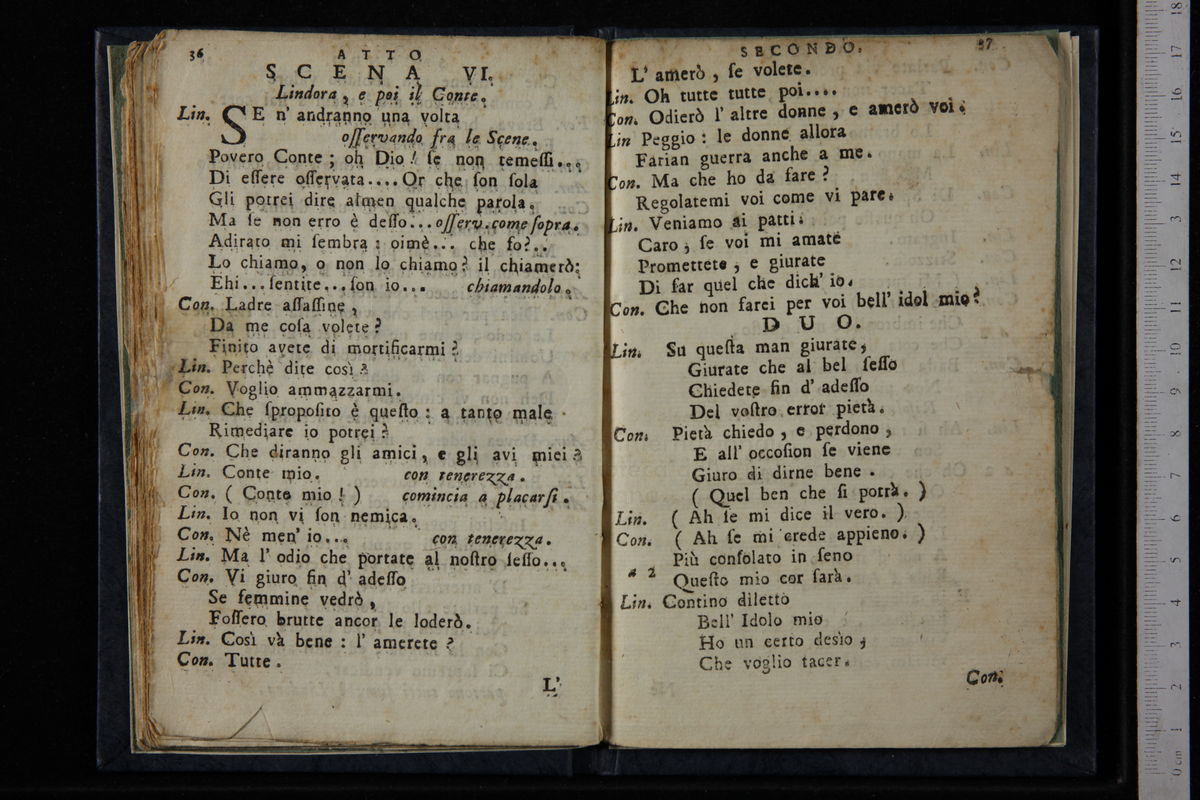 36
ATTO
SCENA VI.
Lindora, e poi il Conte.
Lin. SE n' andranno una volta
oſſervando fra le Scene.
Povero Conte ; oh Dio! ſe non temeſſi...
Di eſſere oſſervata....Or che ſon ſola
Gli potrei dire almen qualche parola.
Ma ſe non erro è deſſo...oſſerv.come ſopra.
Adirato mi ſembra : oimè... che fo?..
Lo chiamo, o non lo chiamo? il chiamerò:
Ehi...ſentite...ſon io... chiamandolo.
Con. Ladre aſſaſſine,
Da me coſa volete?
Finito avete di mortificarmi?
Lin. Perchè dite così?
Con. Voglio ammazzarmi.
Lin. Che ſpropoſito è queſto : a tanto male
Rimediare io potrei?
Con. Che diranno gli amici, e gli avi miei?
Lin. Conte mio. con tenerezza.
Con. ( Conte mio! ) comincia a placarſi.
Lin. Io non vi ſon nemica.
Con. Nè men' io... con tenerezza.
Lin. Ma l' odio che portate al noſtro ſeſſo...
Con. Vi giuro fin d' adeſſo
Se femmine vedrò,
Foſſero brutte ancor le loderò.
Lin. Così và bene : l' amerete?
Con. Tutte.
L'
SECONDO.
37
L' amerò, ſe volete.
Lin. Oh tutte tutte poi....
Con. Odierò l' altre donne, e amerò voi.
Lin Peggio : le donne allora
Farian guerra anche a me.
Con. Ma che ho da fare?
Regolatemi voi come vi pare.
Lin. Veniamo ai patti.
Caro, ſe voi mi amate
Promettete, e giurate
Di far quel che dich' io.
Con. Che non farei per voi bell' idol mio?
DUO.
Lin. Su queſta man giurate,
Giurate che al bel ſeſſo
Chiedete fin d' adeſſo
Del voſtro error pietà.
Con. Pietà chiedo, e perdono,
E all' occoſion ſe viene
Giuro di dirne bene.
( Quel ben che ſi potrà. )
Lin. ( Ah ſe mi dice il vero. )
Con. ( Ah ſe mi crede appieno. )
Più conſolato in ſeno
a 2 Queſto mio cor ſarà.
Lin. Contino diletto
Bell' Idolo mio
Ho un certo desìo,
Che voglio tacer.
Con.